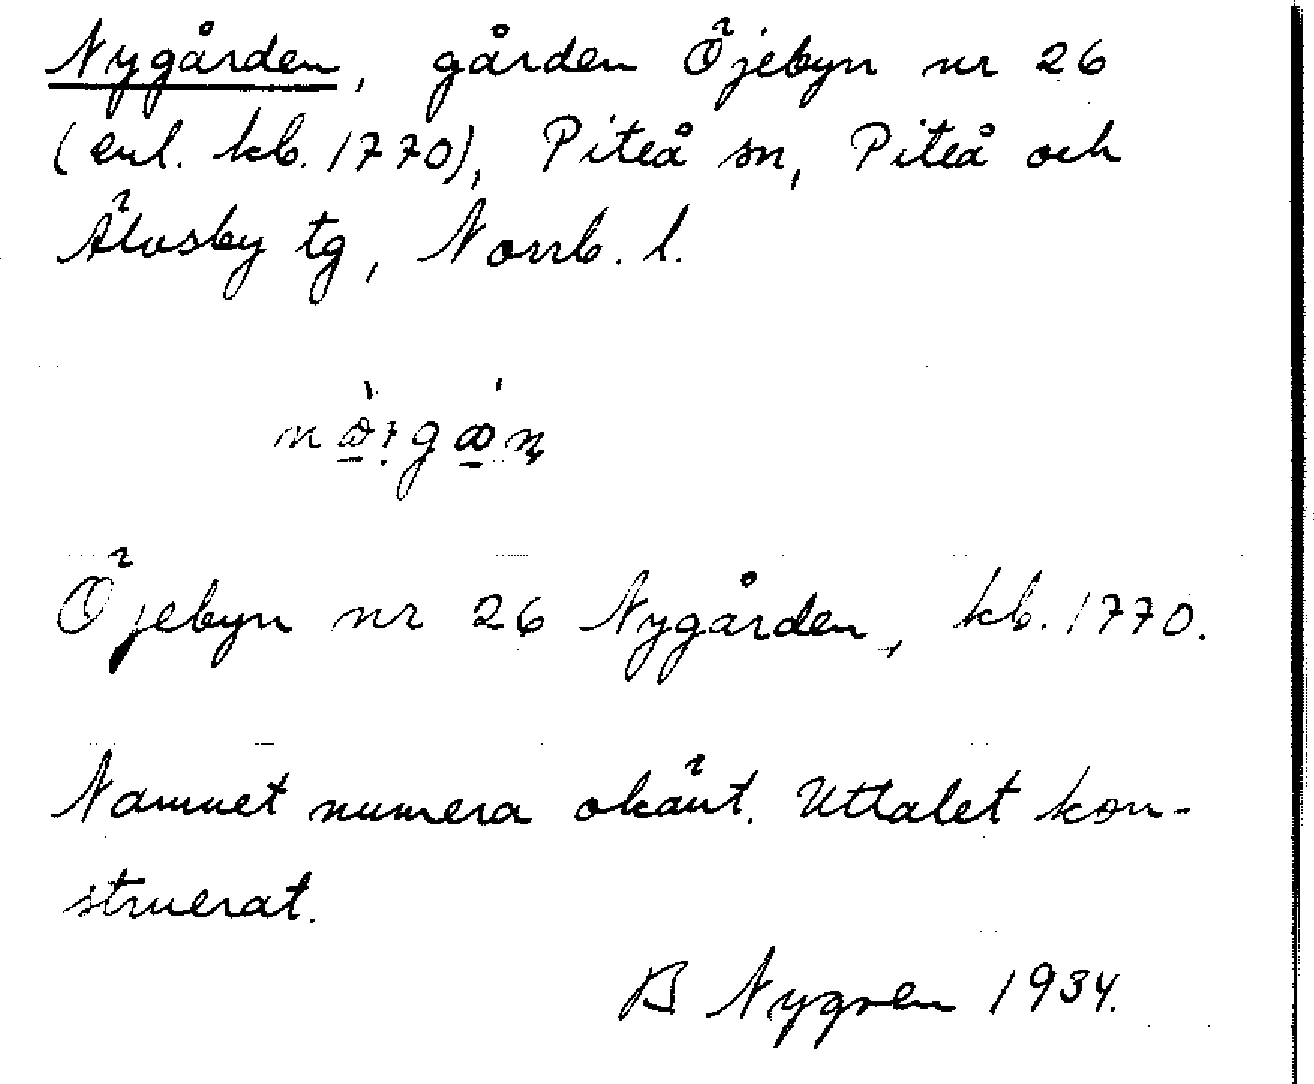 Nygården, gården Öjebyn nr 26
(enl. kb. 1770), Piteå sn, Piteå och
Älvsby tg, Norrb. l.
Öjebyn nr 26 Nygården, kb. 1770.
Namnet numera okänt. Uttalet kon-
struerat.
B Nygren 1934.